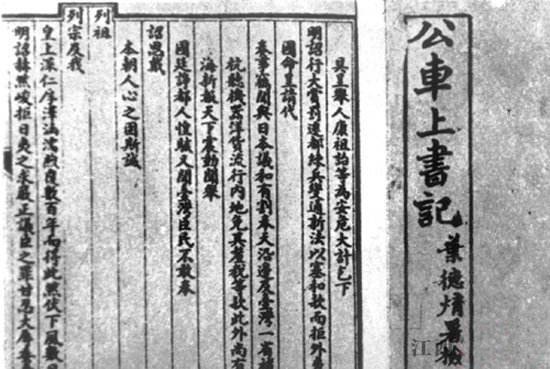 公車上書記
葉 署檢
江
具呈舉人康祖詒等為安危大計乞下
明詔行大賞罰遷都練兵變通新法以塞和款而拒外
國命呈請代
奏事竊聞與日本議和有割奉天沿邊及臺灣一省補
杭聽機器洋貨流行內地免其釐稅等款此外尚有
海新報天下震動聞舉
國廷諍都人惶駭又聞臺灣臣民不敢奉
詔思戴
本朝人心之固斯誠
列祖
列宗及我
皇上深仁厚澤涵濡煦覆數百年而得此然伏下風數日
明詔赫然峻拒日夷之求嚴正議臣之罪甘忍大辱委